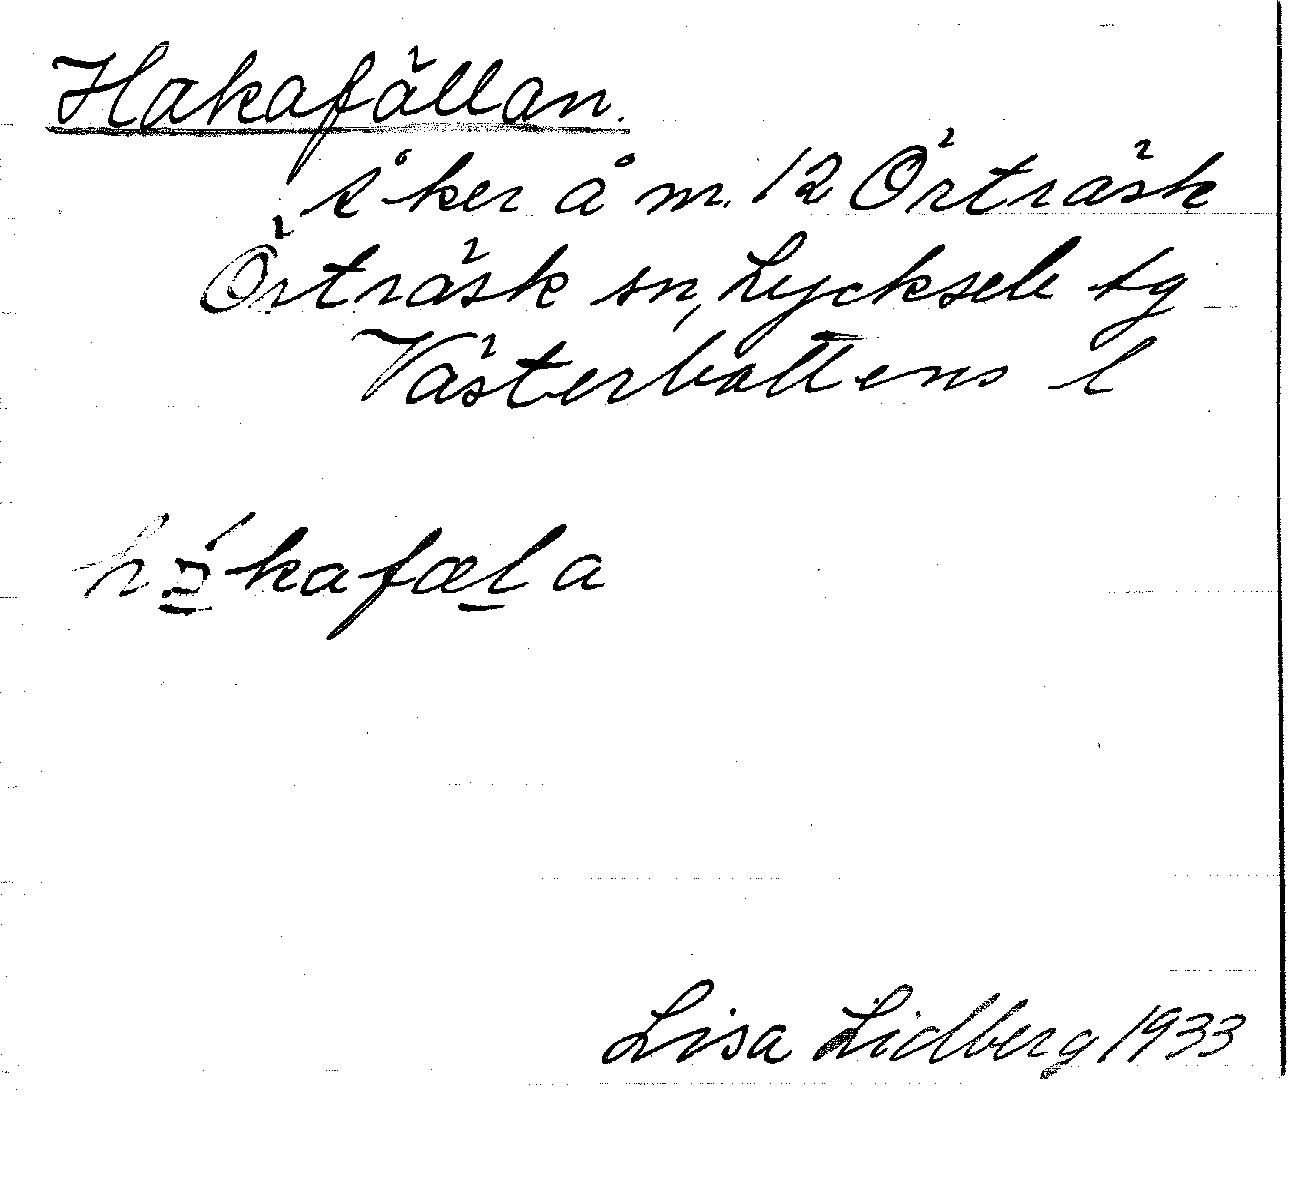 Hakafällan.
Åker å m. 12 Örträsk
Örträsk sn, Lycksele tg
Västerbottens l
kafæla
Lisa Lidberg 1933